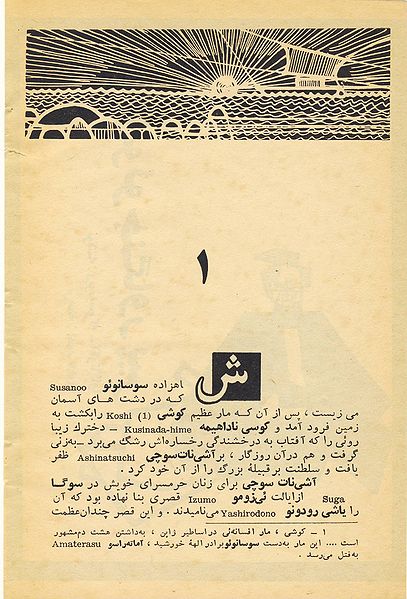 ۱
شاهزاده سوسانوئو Susanoo
که در دشت های آسمان
می زیست ، پس از آن که مار عظیم کوشی (1) Koshi رابکشت به
زمین فرود آمد و کوسی ناداهیمه Kusinada-hime – دخترك زیبا
روئی را که آفتاب به درخشندگی رخساره‌اش رشگ می‌برد – به‌زنی
گرفت و هم درآن روزگار ، برآشی‌نات‌سوچی Ashinatsuchi ظفر
یافت و سلطنت برقبیلهٔ بزرگ را از آن خود کرد .
آشی‌نات سوچی برای زنان حرمسرای خویش در سوگا
Suga ازایالت ئی‌زومو Izumo قصری بنا نهاده بود که آن
را یاشی رودونو Yashirodono می‌نامیدند . و این قصر چندان‌عظمت
۱ – کوشی ، مار افسانه‌ئی دراساطیر ژاپن ، به‌داشتن هشت دم‌مشهور
است .... این مار به‌دست سوسانوئوبرادر الههٔ خورشید ، آماته‌راسو Amaterasu
به‌قتل می‌رسد .